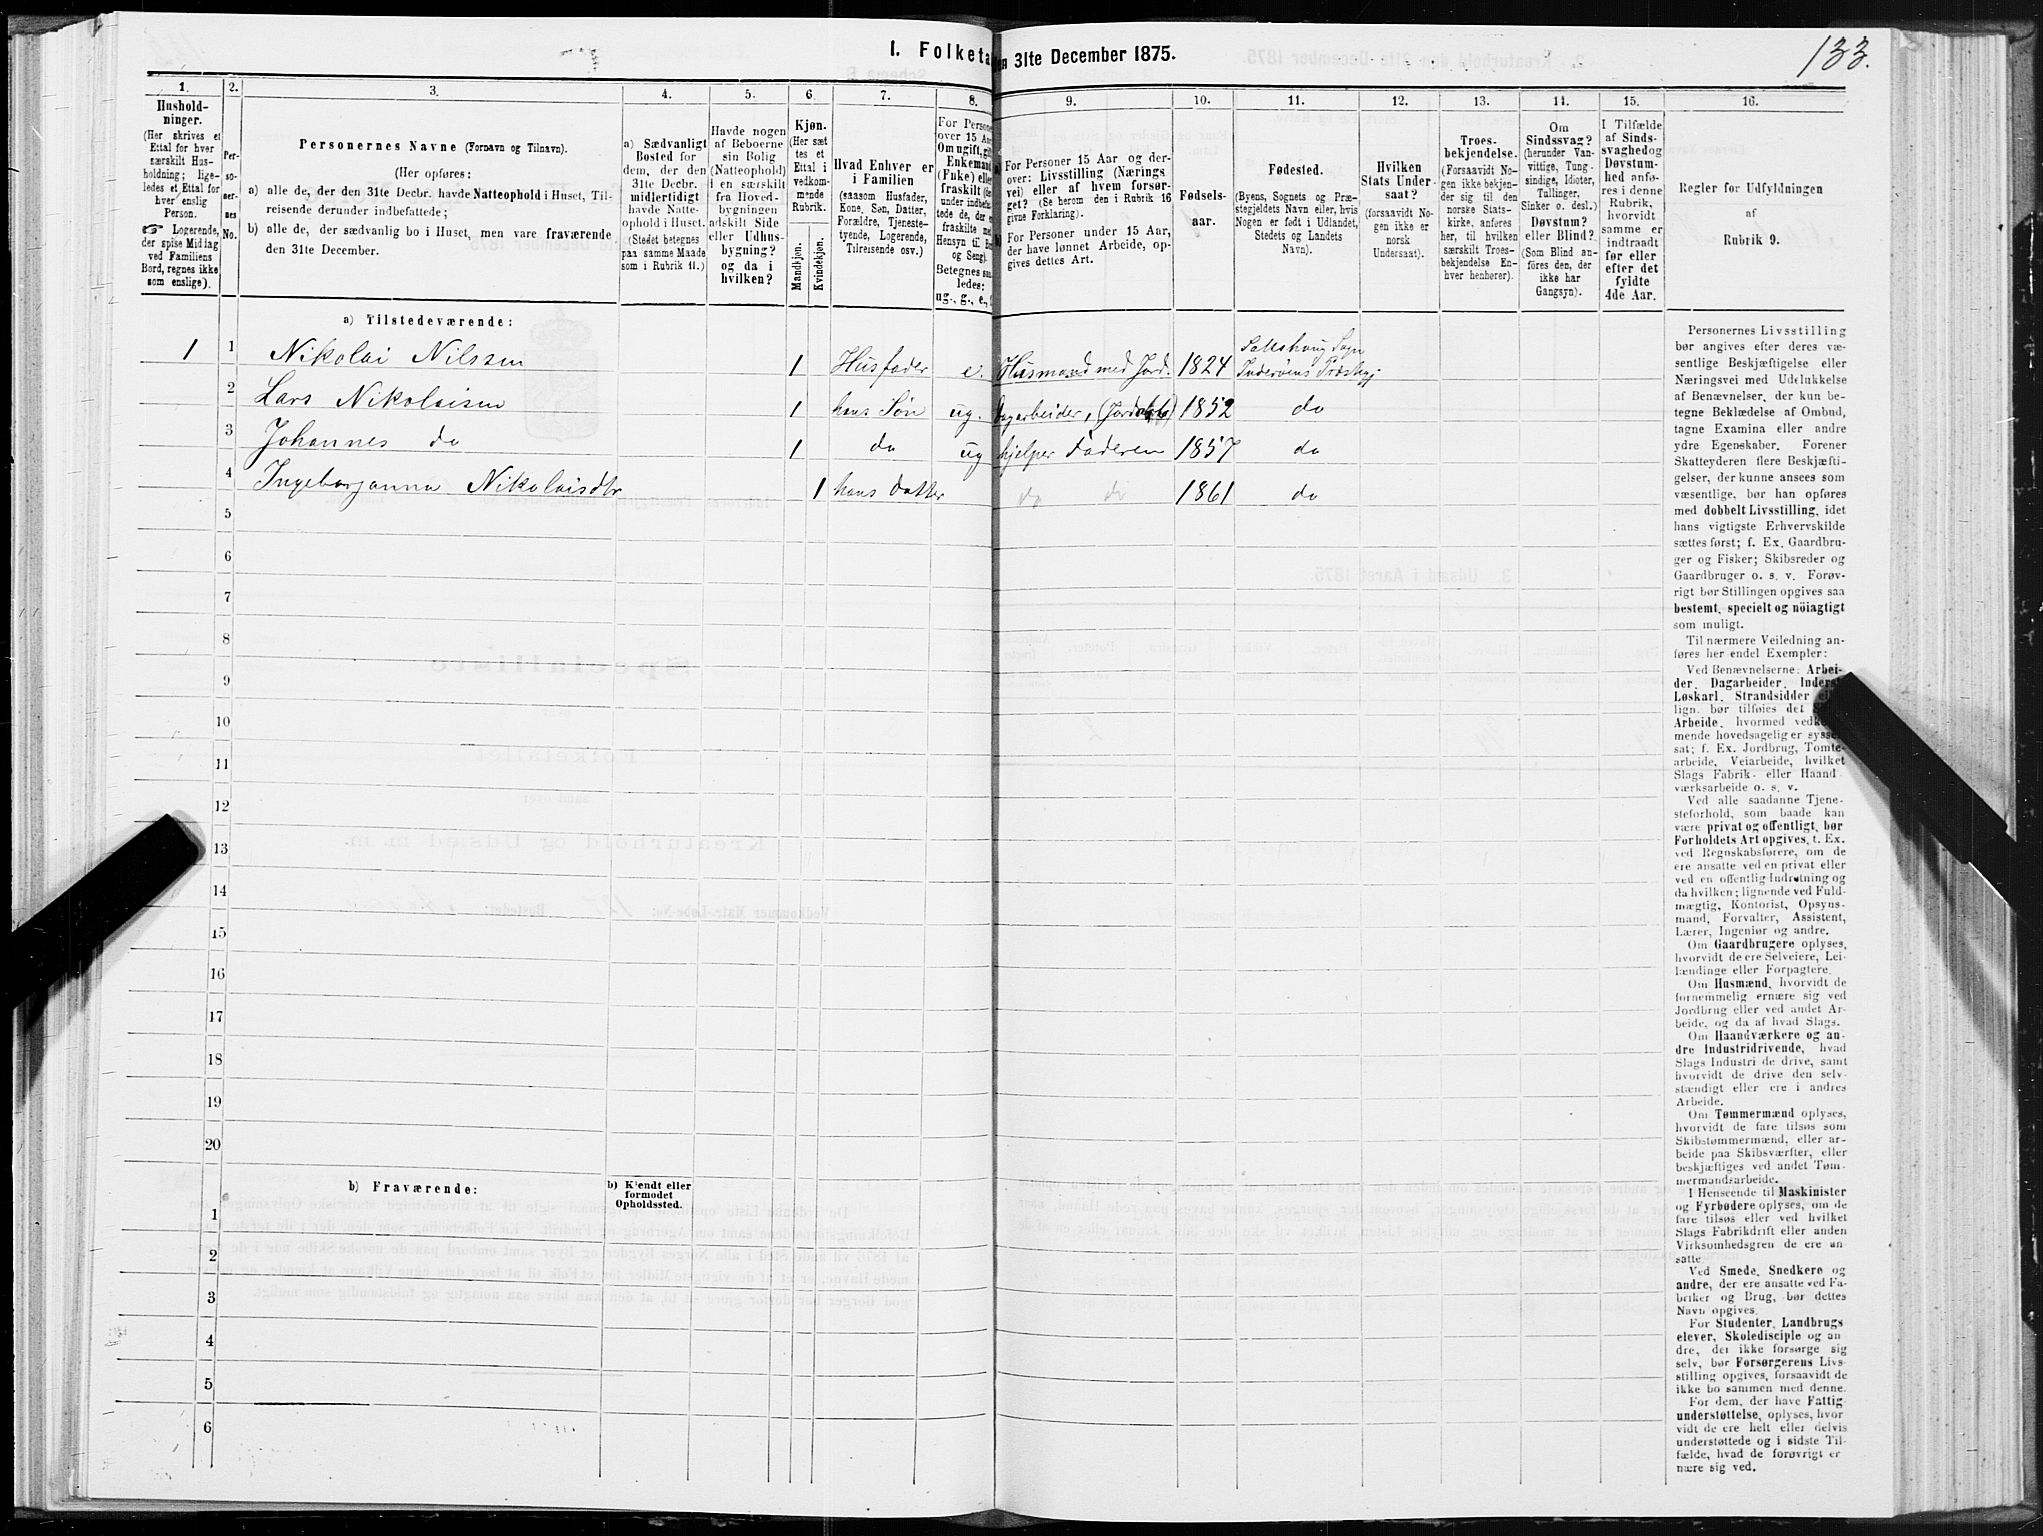 133.
I. Folketa
en 31te December 1875.
1.
2.
3.
4.
5.
6.
7.
8.
9.
10.
11.
12.
13.
14.
15.
16.
Hushold-
ninger.
(Her skrives et
Ettal for hver
særskilt Hus-
holdning; lige-
ledes et Ettal for
hver enslig
Person.
☞ Logerende,
der spise Middag
ved Familiens
Bord, regnes ikke
som enslige).
Per-
so-
ner-
nes
No.
Personernes Navne (Fornavn og Tilnavn).
(Her opføres:
a) alle de, der den 31te Decbr. havde Natteophold i Huset, Til-
reisende derunder indbefattede;
b) alle de, der sædvanlig bo i Huset, men vare fraværende
den 31te December.
a) Sædvanligt
Bosted for
dem, der den
31te Decbr.
midlertidigt
havde Natte-
ophold i Huset.
(Stedet betegnes
paa samme Maade
som i Rubrik 11.)
Havde nogen
af Beboerne
sin Bolig
(Natteophold)
i en særskilt
fra Hoved-
bygningen
adskilt Side
eller Udhus-
bygning?
og da i
hvilken?
Kjøn.
(Her sæt
tes et
Ettal i
vedkom-
mende
Rubrik.
Mandkjøn.
Kvindekjøn.
Hvad Enhver er
i Familien
(saasom Husfader,
Kone, Søn, Datter,
Forældre, Tjeneste-
tyende, Logerende,
Tilreisende osv.)
For Persone
over 15 Aar
Om ugift, gift
Enkemand
(Enke) eller
fraskilt
under indbefat
tede de, der
fraskilte med
Hensyn til Bo
og Seng).
Betegnes saa
ledes:
ug., g., e.,
For Personer 15 Aar og der-
over: Livsstilling (Nærings
vei) eller af hvem forsør-
get? (Se herom den i Rubrik 16
givne Forklaring).
For Personer under 15 Aar,
der have lønnet Arbeide, op-
gives dettes Art.
Fødsels-
aar.
Fødested.
(Byens, Sognets og Præ-
stegjeldets Navn eller, hvis
Nogen er født i Udlandet,
Stedets og Landets
Navn).
Hvilken
Stats Under-
saat?
(forsaavidt No-
gen ikke er
norsk
Undersaat).
Troes-
bekjendelse.
(Forsaavidt No-
gen ikke bekjen-
der sig til den
norske Stats-
kirke, anføres
her, til hvilken
særskilt Troes-
bekjendelse En-
hver henhører).
Om
Sindssvag?
(herunder Van-
vittige, Tung-
sindige, Idioter,
Tullinger,
Sinker o. desl.)
Døvstum?
eller Blind?
(Som Blind an-
føres den, der
ikke har
Gangsyn).
I Tilfælde
af Sinds-
svaghed og
Døvstum-
hed anfø-
res i denne
Rubrik,
hvorvidt
samme er
indtraadt
før eller
efter det
fyldte
4de Aar.
Regler for Udfyldningen
af
Rubrik 9.
a) Tilstedeværende:
1 1 Nikolai Nilssen 1 Husfader e. Husmand med Jord. 1824 Sogn
2 Lars Nikolaisen 1 hans Søn ug. Dagarbeider, 1852 do
3 Johannes do 1 do ug hjelper Faderen 1857 do
4 Ingeborganna Nikolaisdtr 1 hans datter do do 1861 do
5
6
7
8
9
10
11
12
13
14
15
16
17
18
19
20
b) Fraværende:
b) Kjendt eller
formodet
Opholdssted.
1
2
3
4
5
6
Personernes Livsstilling
bør angives efter deres væ-
sentlige Beskjæftigelse eller
Næringsvei med Udelukkelse
af Benævnelser, der kun be-
tegne Beklædelse af Ombud,
tagne Examina eller andre
ydre Egenskaber. Forener
Skatteyderen flere Beskjæfti-
gelser, der kunne ansees som
væsentlige, bør han opføres
med dobbelt Livsstilling, idet
hans vigtigste Erhvervskilde
sættes først; f. Ex. Gaardbru-
ger og Fisker; Skibsreder og
Gaardbruger o. s. v. Forøv-
rigt bør Stillingen opgives saa
bestemt, specielt og nöiagtigt
som muligt.
Til nærmere Veiledning an-
føres her endel Exempler:
Ved Benævnelserne Arbei-
der, Dagarbeider,
Løskarl, Strandsidder
lign. bør tilføies det
Arbeide, hvormed
mende hovedsagelig er
sat; f. Ex. Jordbrug, Tomte-
arbeide, Veiarbeide, hvilket
Slags Fabrik- eller Haand
værksarbeide o. s. v.
Ved alle saadanne Tjene-
steforhold, som baade kan
være privat og offentligt, bør
Forholdets Art opgives, f. Ex.
ved Regnskabsførere, om de
ere ansatte ved en privat eller
ved en offentlig Indretning og
da hvilken; lignende ved Fuld-
mægtig, Kontorist, Opsyns-
mand, Forvalter, Assistent,
Lærer, Ingeniør og andre.
Om Gaardbrugere oplyses,
hvorvidt de ere Selveiere, Lei-
lændinge eller Forpagtere.
Om Husmænd, hvorvidt de
fornemmelig ernære sig ved
Jordbrug eller ved andet Ar-
beide, og da af hvad Slags.
Om Haandværkere og an-
dre Industridrivende, hvad
Slags Industri de drive, samt
hvorvidt de drive den selv-
stændigt eller ere i andres
Arbeide.
Om Tømmermænd oplyses,
hvorvidt de fare tilsøs som
Skibstømmermænd, eller ar-
beide paa Skibsværfter, eller
beskjæftiges ved andet Tøm-
mermandsarbeide.
I Henseende til Maskinister
og Fyrbødere oplyses, om de
fare tilsøs eller ved hvilket
Slags Fabrikdrift eller anden
Virksomhedsgren de ere an-
satte.
Ved Smede, Snedkere og
andre, der ere ansatte ved Fa-
briker og Brug, bør dettes
Navn opgives.
For Studenter, Landbrugs
elever, Skoledisciple og an
dre, der ikke forsørge sig
selv, bør Forsørgerens Livs-
stilling opgives, forsaavidt de
ikke bo sammen med denne.
For dem, der have Fattig
understøttelse, oplyses, hvor
vidt de ere helt eller delvis
understøttede og i sidste Til-
fælde, hvad de forøvrigt er
nære sig ved.